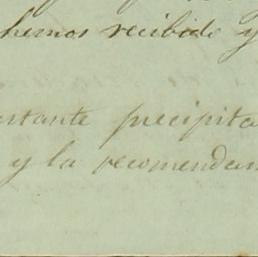 hemos recibido y
nstante precipita
y la recomendam